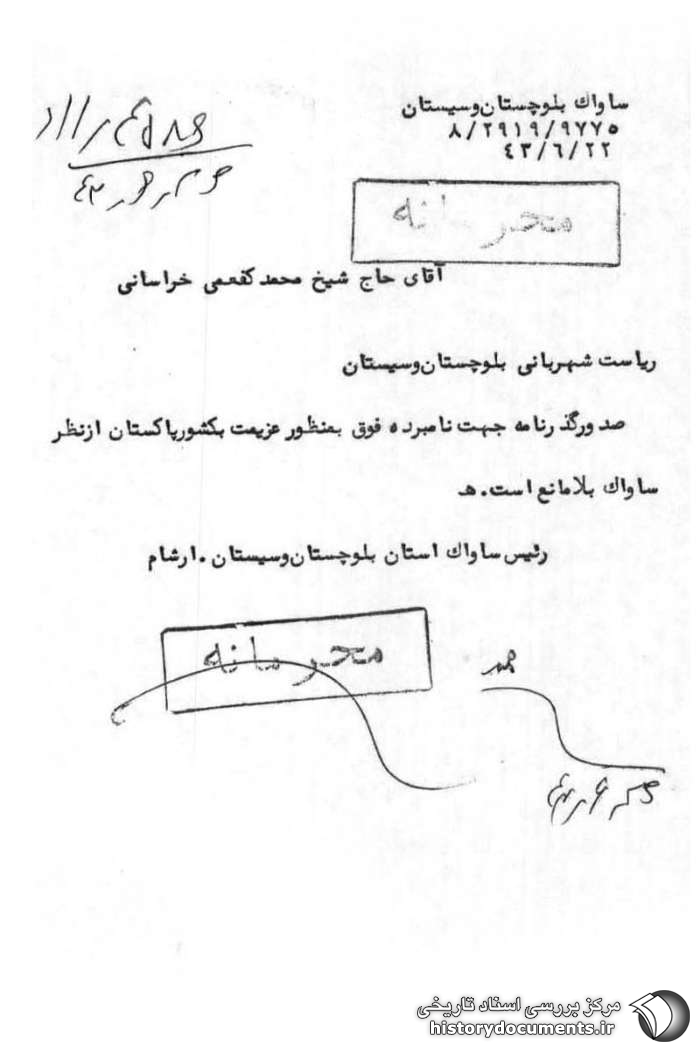 ساواك بلوچستان‌وسیستان
۸/۲۹۱۹/۹۷۷۵
٤۳/٦/۲۲
محرمانه
آقای حاج شیخ محمد کفعمی خراسانی
ریاست شهربانی بلوچستان‌وسیستان
صدورگذرنامه جهت نامبرده فوق بمنظور عزیمت بکشورپاکستان ازنظر
ساواك بلامانع است.هـ
رئیس ساواك استان بلوچستان‌وسیستان .ارشام
محرمانه
مرکز بررسی اسناد تاریخی
historydocuments.ir